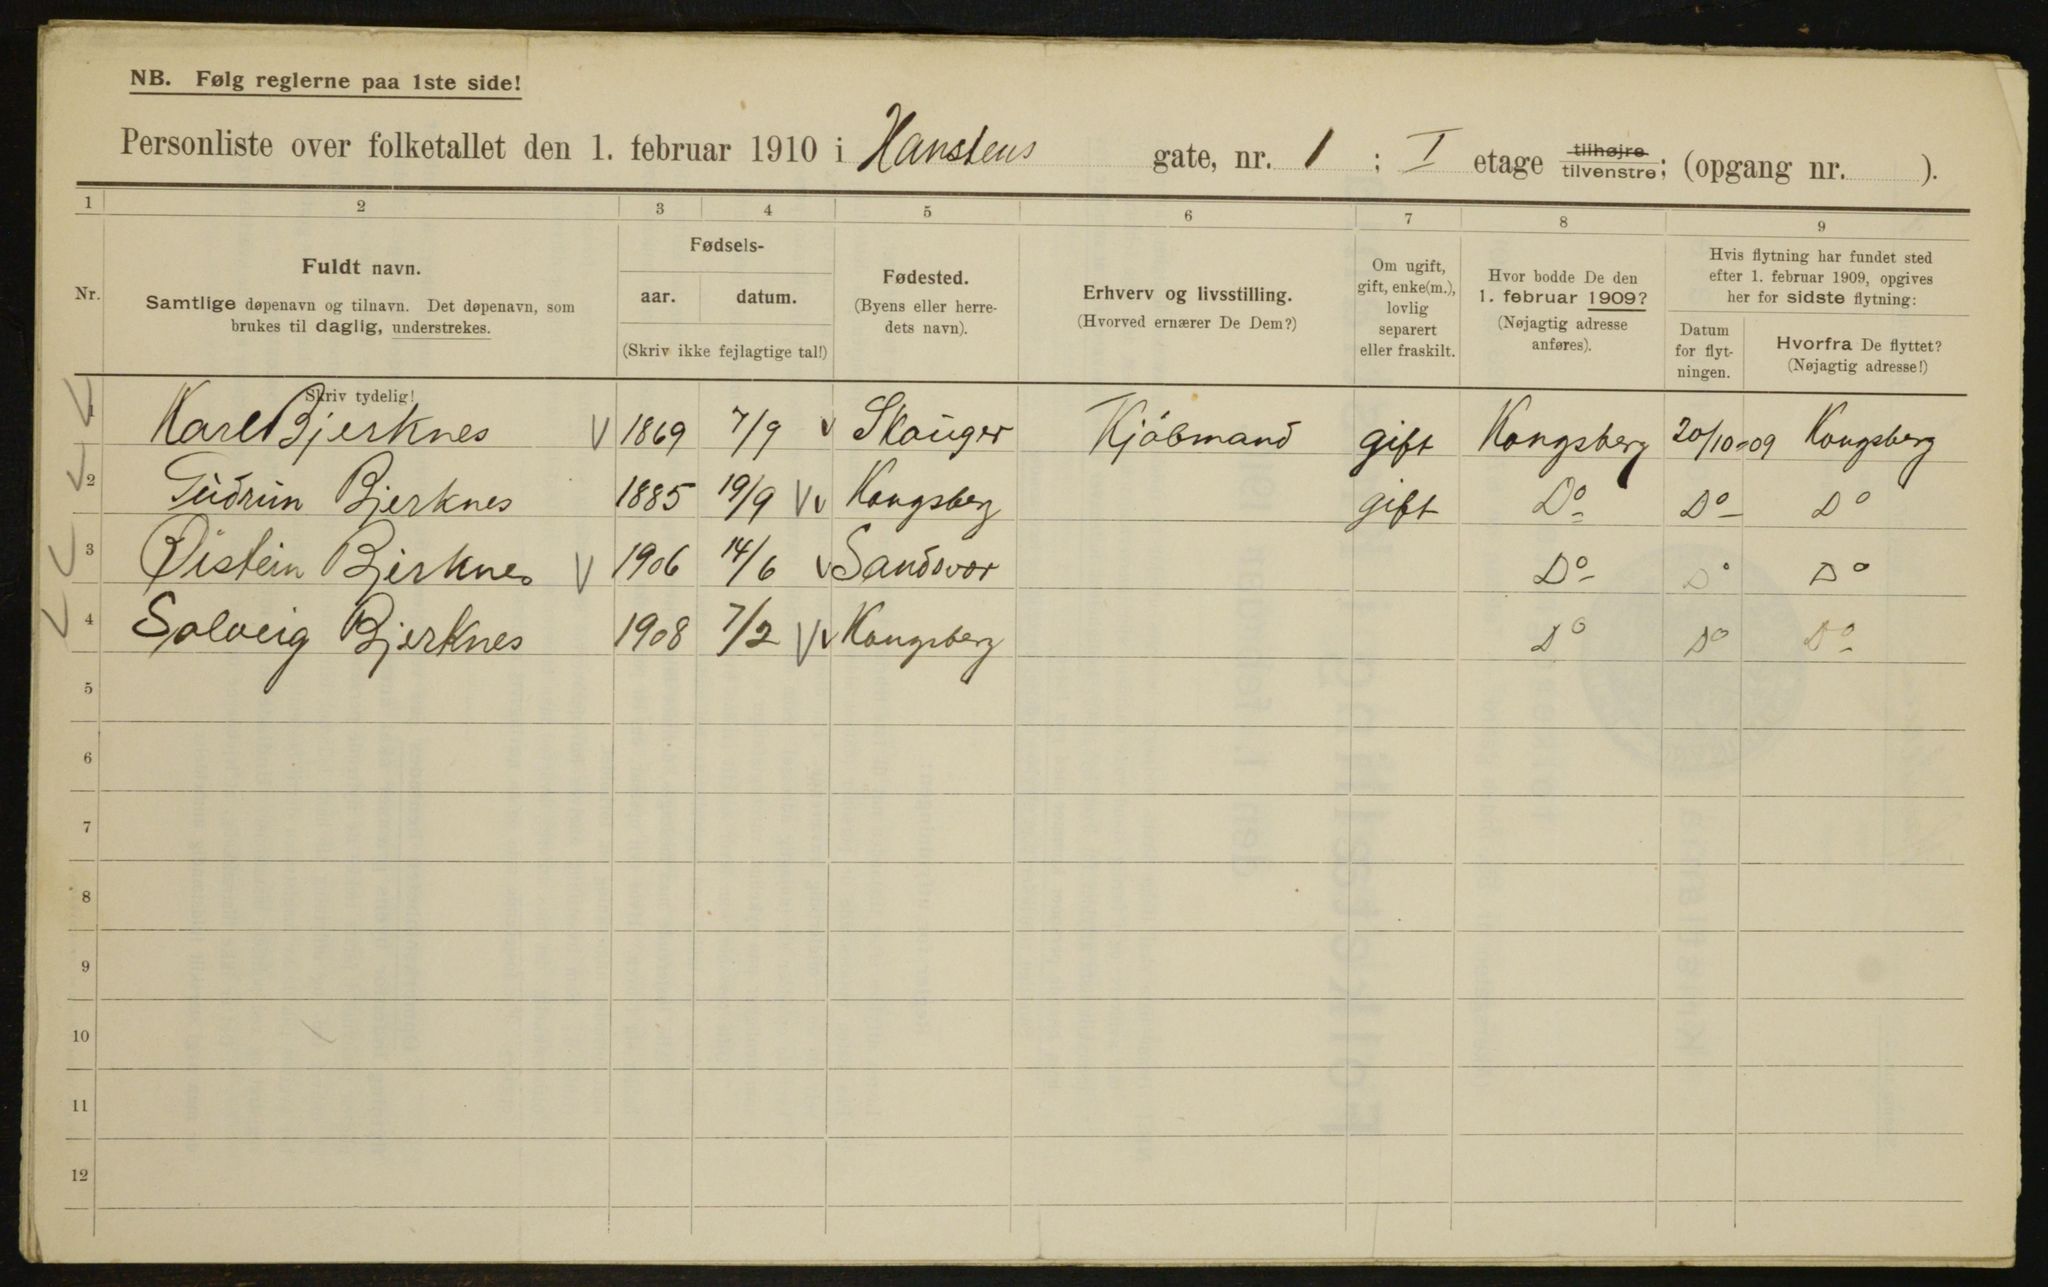 NB. Følg reglerne paa 1ste side!
Personliste over folketallet den 1. februar 1910 i Hansteens gate, nr. 1 ; I etage tilhøjre tilvenstre; (opgang nr. ).
1 2 3 4 5 6 7 8 9
Nr.
Fuldt navn.
Samtlige døpenavn og tilnavn. Det døpenavn, som
brukes til daglig, understrekes.
Skriv tydelig!
Fødsels-
aar. datum.
(Skriv ikke fejlagtige tal!)
Fødested.
(Byens eller herre-
dets navn).
Erhverv og livsstilling.
(Hvorved ernærer De Dem?)
Om ugift,
gift, enke(m.),
lovlig
separert
eller fraskilt.
Hvor bodde De den
1. februar 1909?
(Nøjagtig adresse
anføres).
Hvis flytning har fundet sted
efter 1. februar 1909, opgives
her for sidste flytning:
Datum
for flyt-
ningen.
Hvorfra De flyttet?
(Nøjagtig adresse!)
1 Karl Bjerknes 1869 7/9 Skouger Kjöbmand gift Kongsberg 20/10-09 Kongsberg
2 Gudrun Bjerknes 1885 19/9 Kongsberg gift Do Do Do
3 Øistein Bjerknes 1906 14/6 Sandsvær Do Do Do
4 Solveig Bjerknes 1908 7/2 Kongsberg Do Do Do
5
6
7
8
9
10
11
12